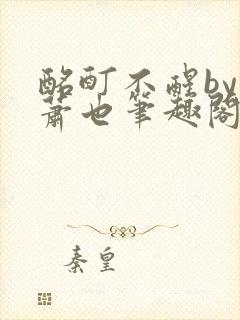 酩酊不醒by
萧也笔趣阁
秦皇